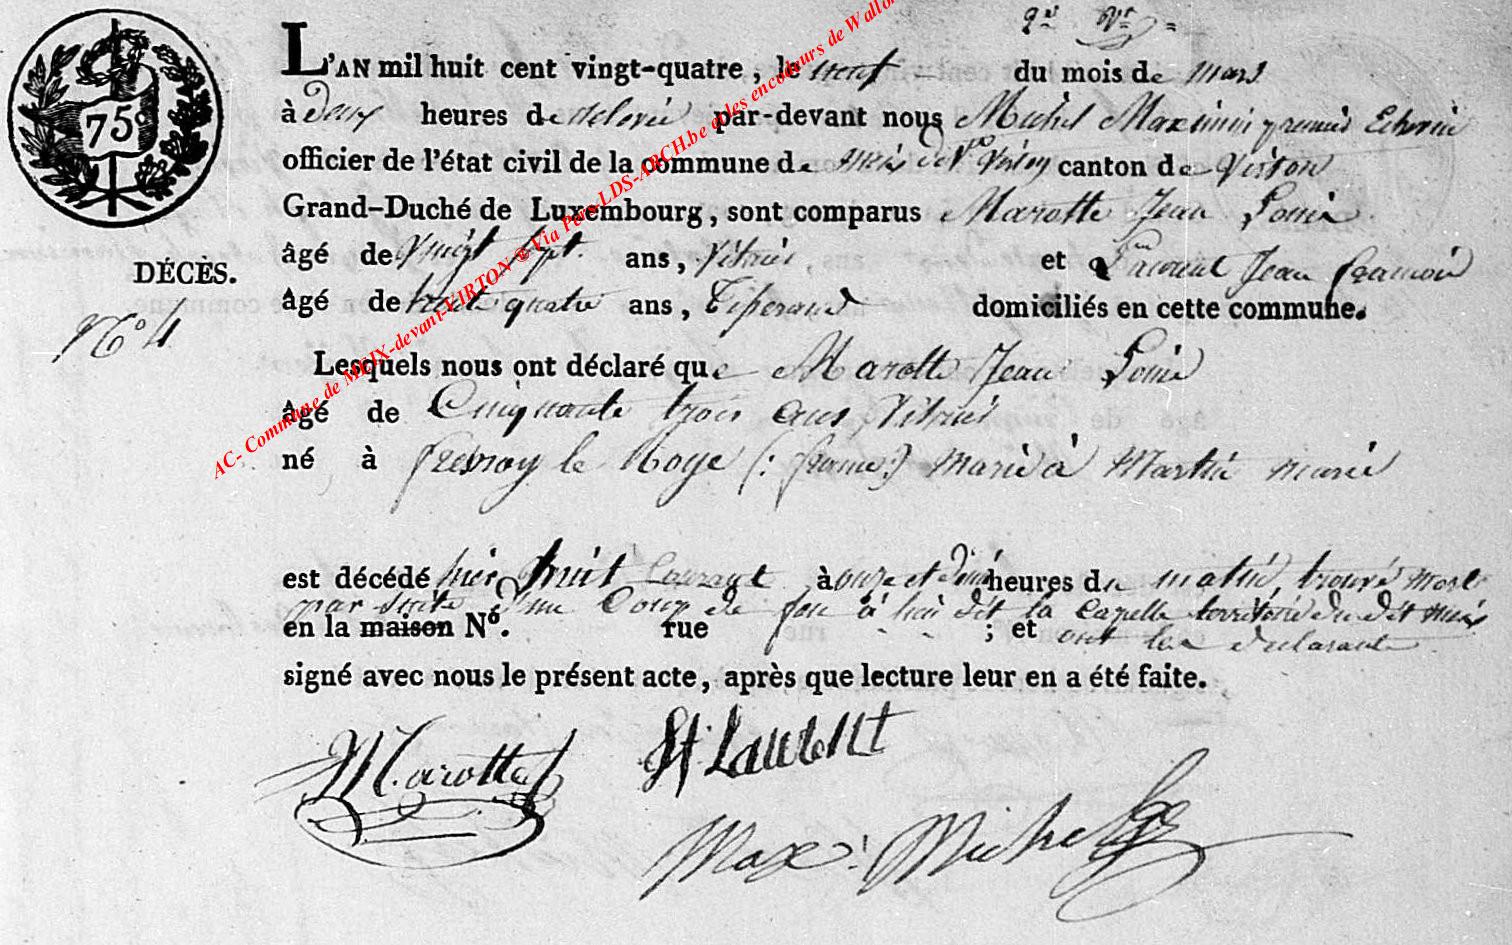 75 c
2d Vt =
L'AN mil huit cent vingt-quatre, le neuf du mois de mars
à deux heures de relevée par-devant nous Michel Maximin premier Echevin
officier de l'état civil de la commune de Meix dvt Virton canton de Virton
Grand-Duché de Luxembourg, sont comparus Marotte Jean Louis
âgé de Vingt sept ans, Vitrier et Laurent Jean francois
DÉCÈS.
âgé de trente quatre ans, Tisserand domiciliés en cette commune.
No 4
Lesquels nous ont déclaré que Marotte Jean Louis
âgé de Cinquante trois ans Vitrier
né à fresnoy le Roye (: france :) marié à Martin marie
est décédé hier huit Courant à onze et demi heures du matin, trouvé mort
par suite d'un Coup de feu à lieu dit la Capelle territoire du dit Meix
en la maison No. rue ; et ont les declarants
signé avec nous le présent acte, après que lecture leur en a été faite.
Marotte St Laurent
Max: Michel
AC- Commune de MEIX-devant-VIRTON @ Via Pers-LDS-ARCH.be et les encodeurs de Wallon